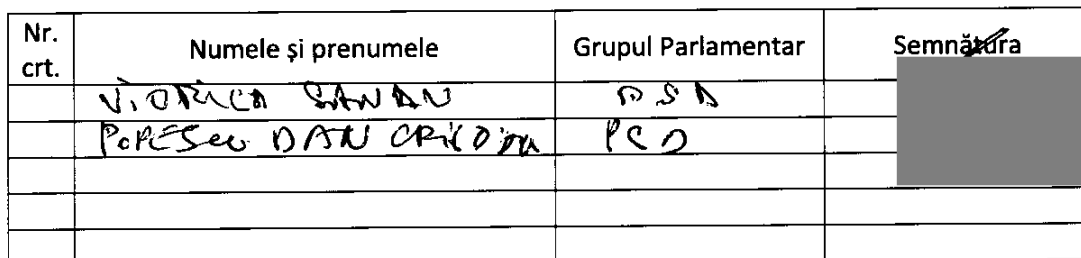 Nr. crt. Numele și prenumele Grupul Parlamentar Semnătura
VIORICA SANDU PSD
POPESCU DAN CRISTIAN PSD